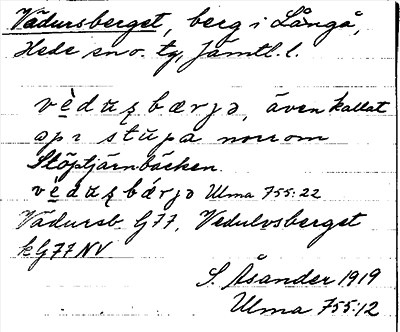 Vädursberget, berg i Långå,
Hede sn o. tg, Jämtl. l.
vèduʂbærjə, även kallat
stùpa norr om
Stöptjärnbäcken.
vèduʂbǽrjə Ulma 755:22
Vädursb. G77, Vedulvsberget
kG77NV
S. Åsander 1919
Ulma 755:12